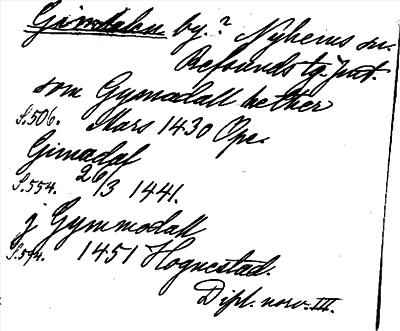 Gimdalen by.? Nyhems sn.
Refsunds tg. Jmt.
som Gymodall hether
S.506. Mars 1430 Ope.
Gimadal
S.554. 26/3 1441.
j Gymmodall
S.594. 1451 Hognestad.
Dipl. norv. III.